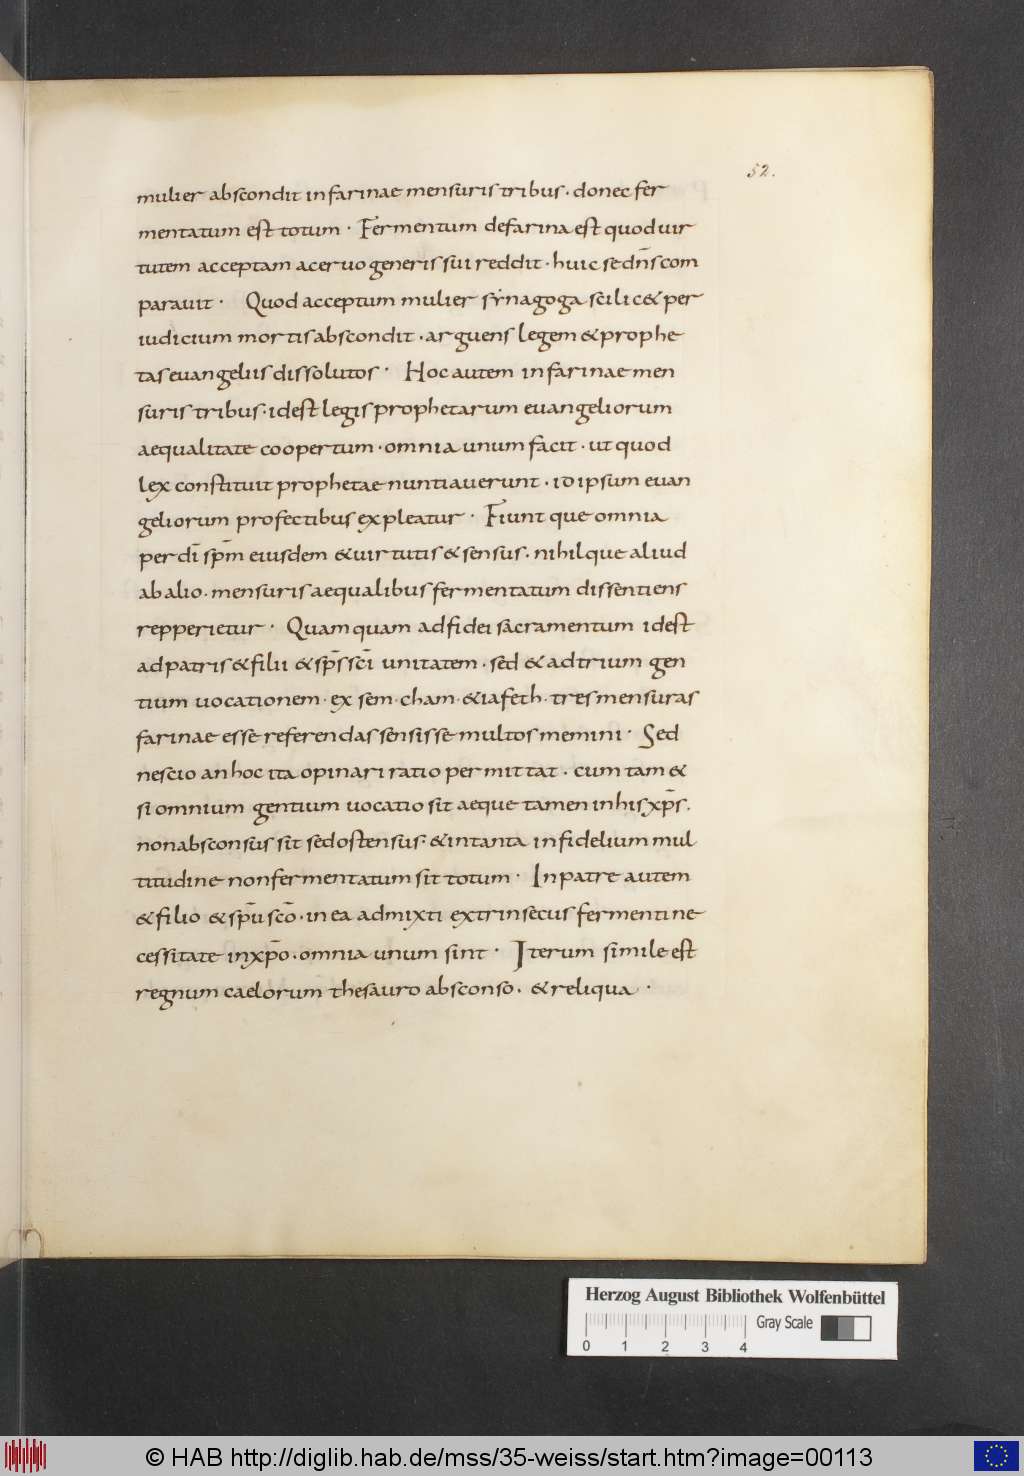 52.
mulier abscondit infarinae mensuris tribus · donec fer
mentatum est totum · Fermentum defarina est quod uir
tutem acceptam aceruo generis sui reddit · huic se dn̄s com
parauit · Quod acceptum mulier synagoga scilic& per
iudicium mortis abscondit · arguens legem & prophe
tas euangeliis dissolutos · Hoc autem in farinae men
suris tribus · idest legis prophetarum euangeliorum
aequalitate coopertum · omnia unum facit · ut quod
lex constituit prophetae nuntiauerunt · id ipsum euan
geliorum profectibus expleatur · Fiunt que omnia
per dī spm̄ eiusdem & uirtutis & sensus · nihilque aliud
ab alio · mensuris aequalibus fermentatum dissentiens
repperietur · Quamquam ad fidei sacramentum idest
ad patris & filii & sp̄s sc̄i unitatem · sed & ad trium gen
tium uocationem · ex sem · cham · & iafeth · tres mensuras
farinae esse referendas sensisse multos memini · Sed
nescio an hoc ita opinari ratio permittat · cum tam &
si omnium gentium uocatio sit aeque tamen in his xp̄s ·
non absconsus sit sed ostensus · & in tanta infidelium mul
titudine non fermentatum sit totum · In patre autem
& filio & sp̄u sc̄o · in ea admixti extrinsecus fermenti ne
cessitate in xp̄o · omnia unum sint · Iterum simile est
regnum caelorum thesauro absconso · & reliqua ·
Herzog August Bibliothek Wolfenbüttel
Gray Scale
0 1 2 3 4
© HAB http://diglib.hab.de/mss/35-weiss/start.htm?image=00113